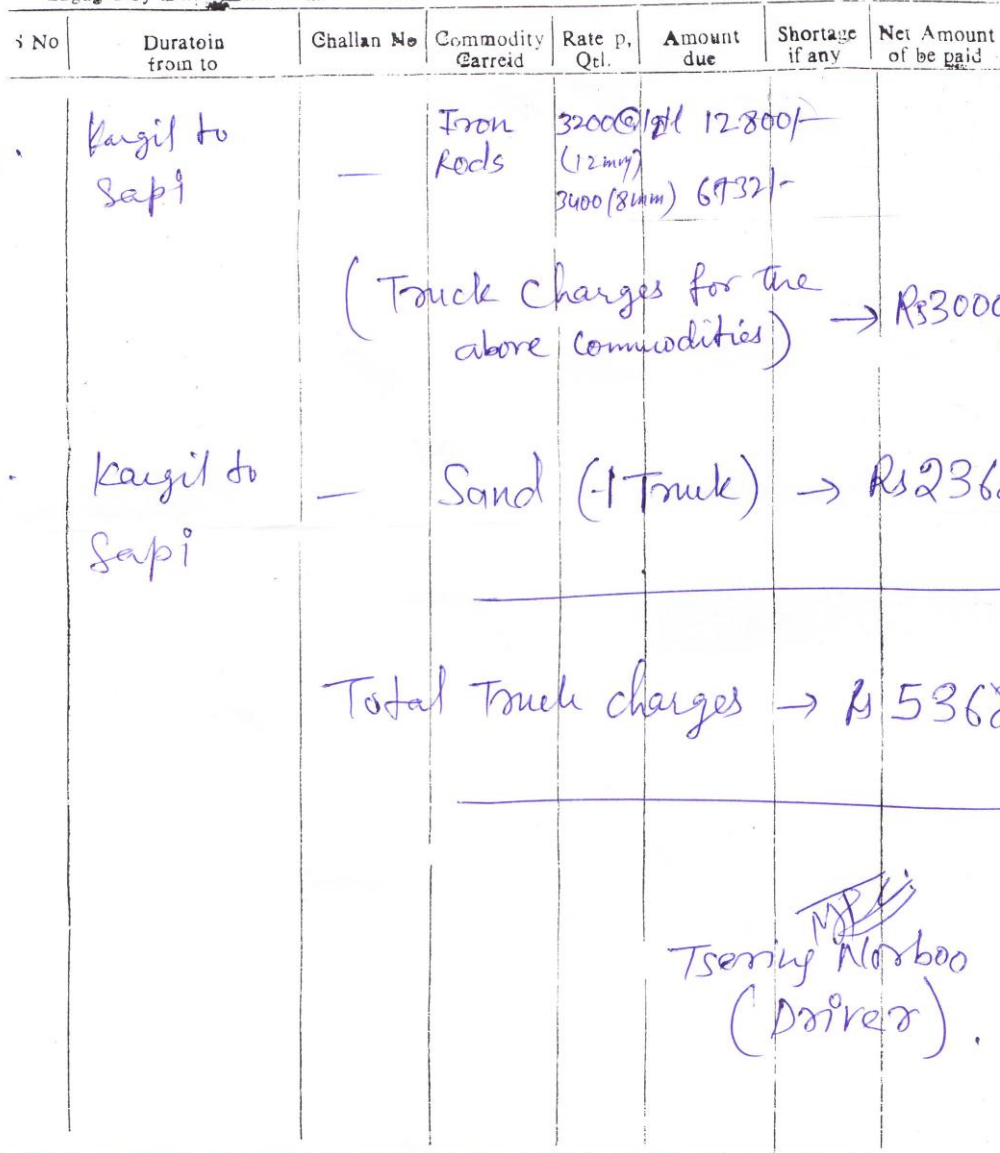 S No Duratoin from to Challan No Commodity Carreid Rate p, Qtl. Amount due Shortage if any Net Amount of be paid
Kargil to Iron 3200@1qtl 12800/-
Sapi — Rods (12mm)
3400 (8mm) 6932/-
(Truck Charges for the
above commodities) → Rs3000
Kargil to — Sand (-1 Truck) → Rs236
Sapi
Total Truck charges → Rs 5368
Tsering Norboo
(Driver).